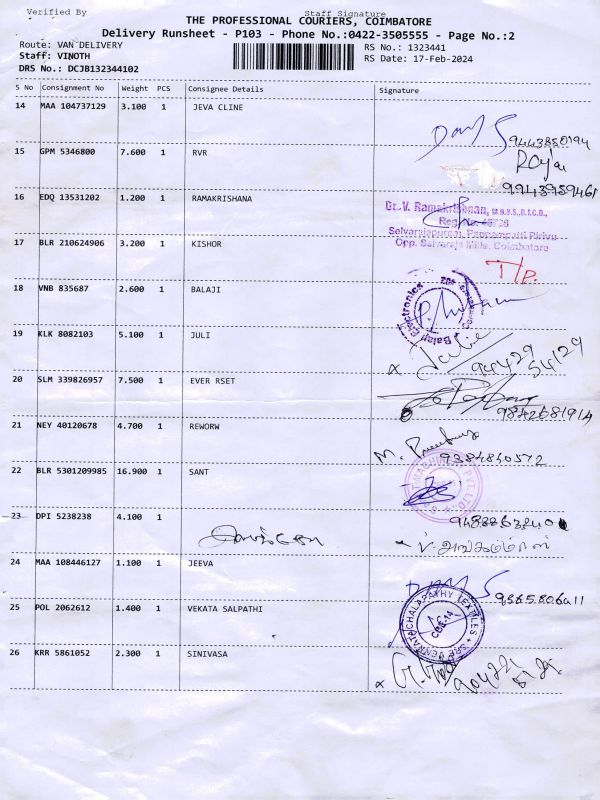 Verified By Staff Signature
THE PROFESSIONAL COURIERS, COIMBATORE
Delivery Runsheet - P103 - Phone No.:0422-3505555 - Page No.:2
Route: VAN DELIVERY RS No.: 1323441
Staff: VINOTH RS Date: 17-Feb-2024
DRS No.: DCJB132344102
S No Consignment No Weight PCS Consignee Details Signature
14 MAA 104737129 3.100 1 JEVA CLINE
9443850194
15 GPM 5346800 7.600 1 RVR Roja
9943959461
16 EDQ 13531202 1.200 1 RAMAKRISHANA
Dr. V. Ramakrishnan, M.B.B.S.,D.T.C.D.,
Reg. No.
Selvarajapuram, Pappampatti Pirivu
Opp. Selvaraja Mills, Coimbatore
17 BLR 210624906 3.200 1 KISHOR
T/P.
18 VNB 835687 2.600 1 BALAJI
Balaji Electronics
19 KLK 8082103 5.100 1 JULI Julie
94429 54129
20 SLM 339826957 7.500 1 EVER RSET
9842681914
21 NEY 40120678 4.700 1 REWORW
9384840572
22 BLR 5301209985 16.900 1 SANT
23 DPI 5238238 4.100 1
24 MAA 108446127 1.100 1 JEEVA
25 POL 2062612 1.400 1 VEKATA SALPATHI
SREE VENKATACHALAPATHY TEXTILES
CBE-14
26 KRR 5861052 2.300 1 SINIVASA